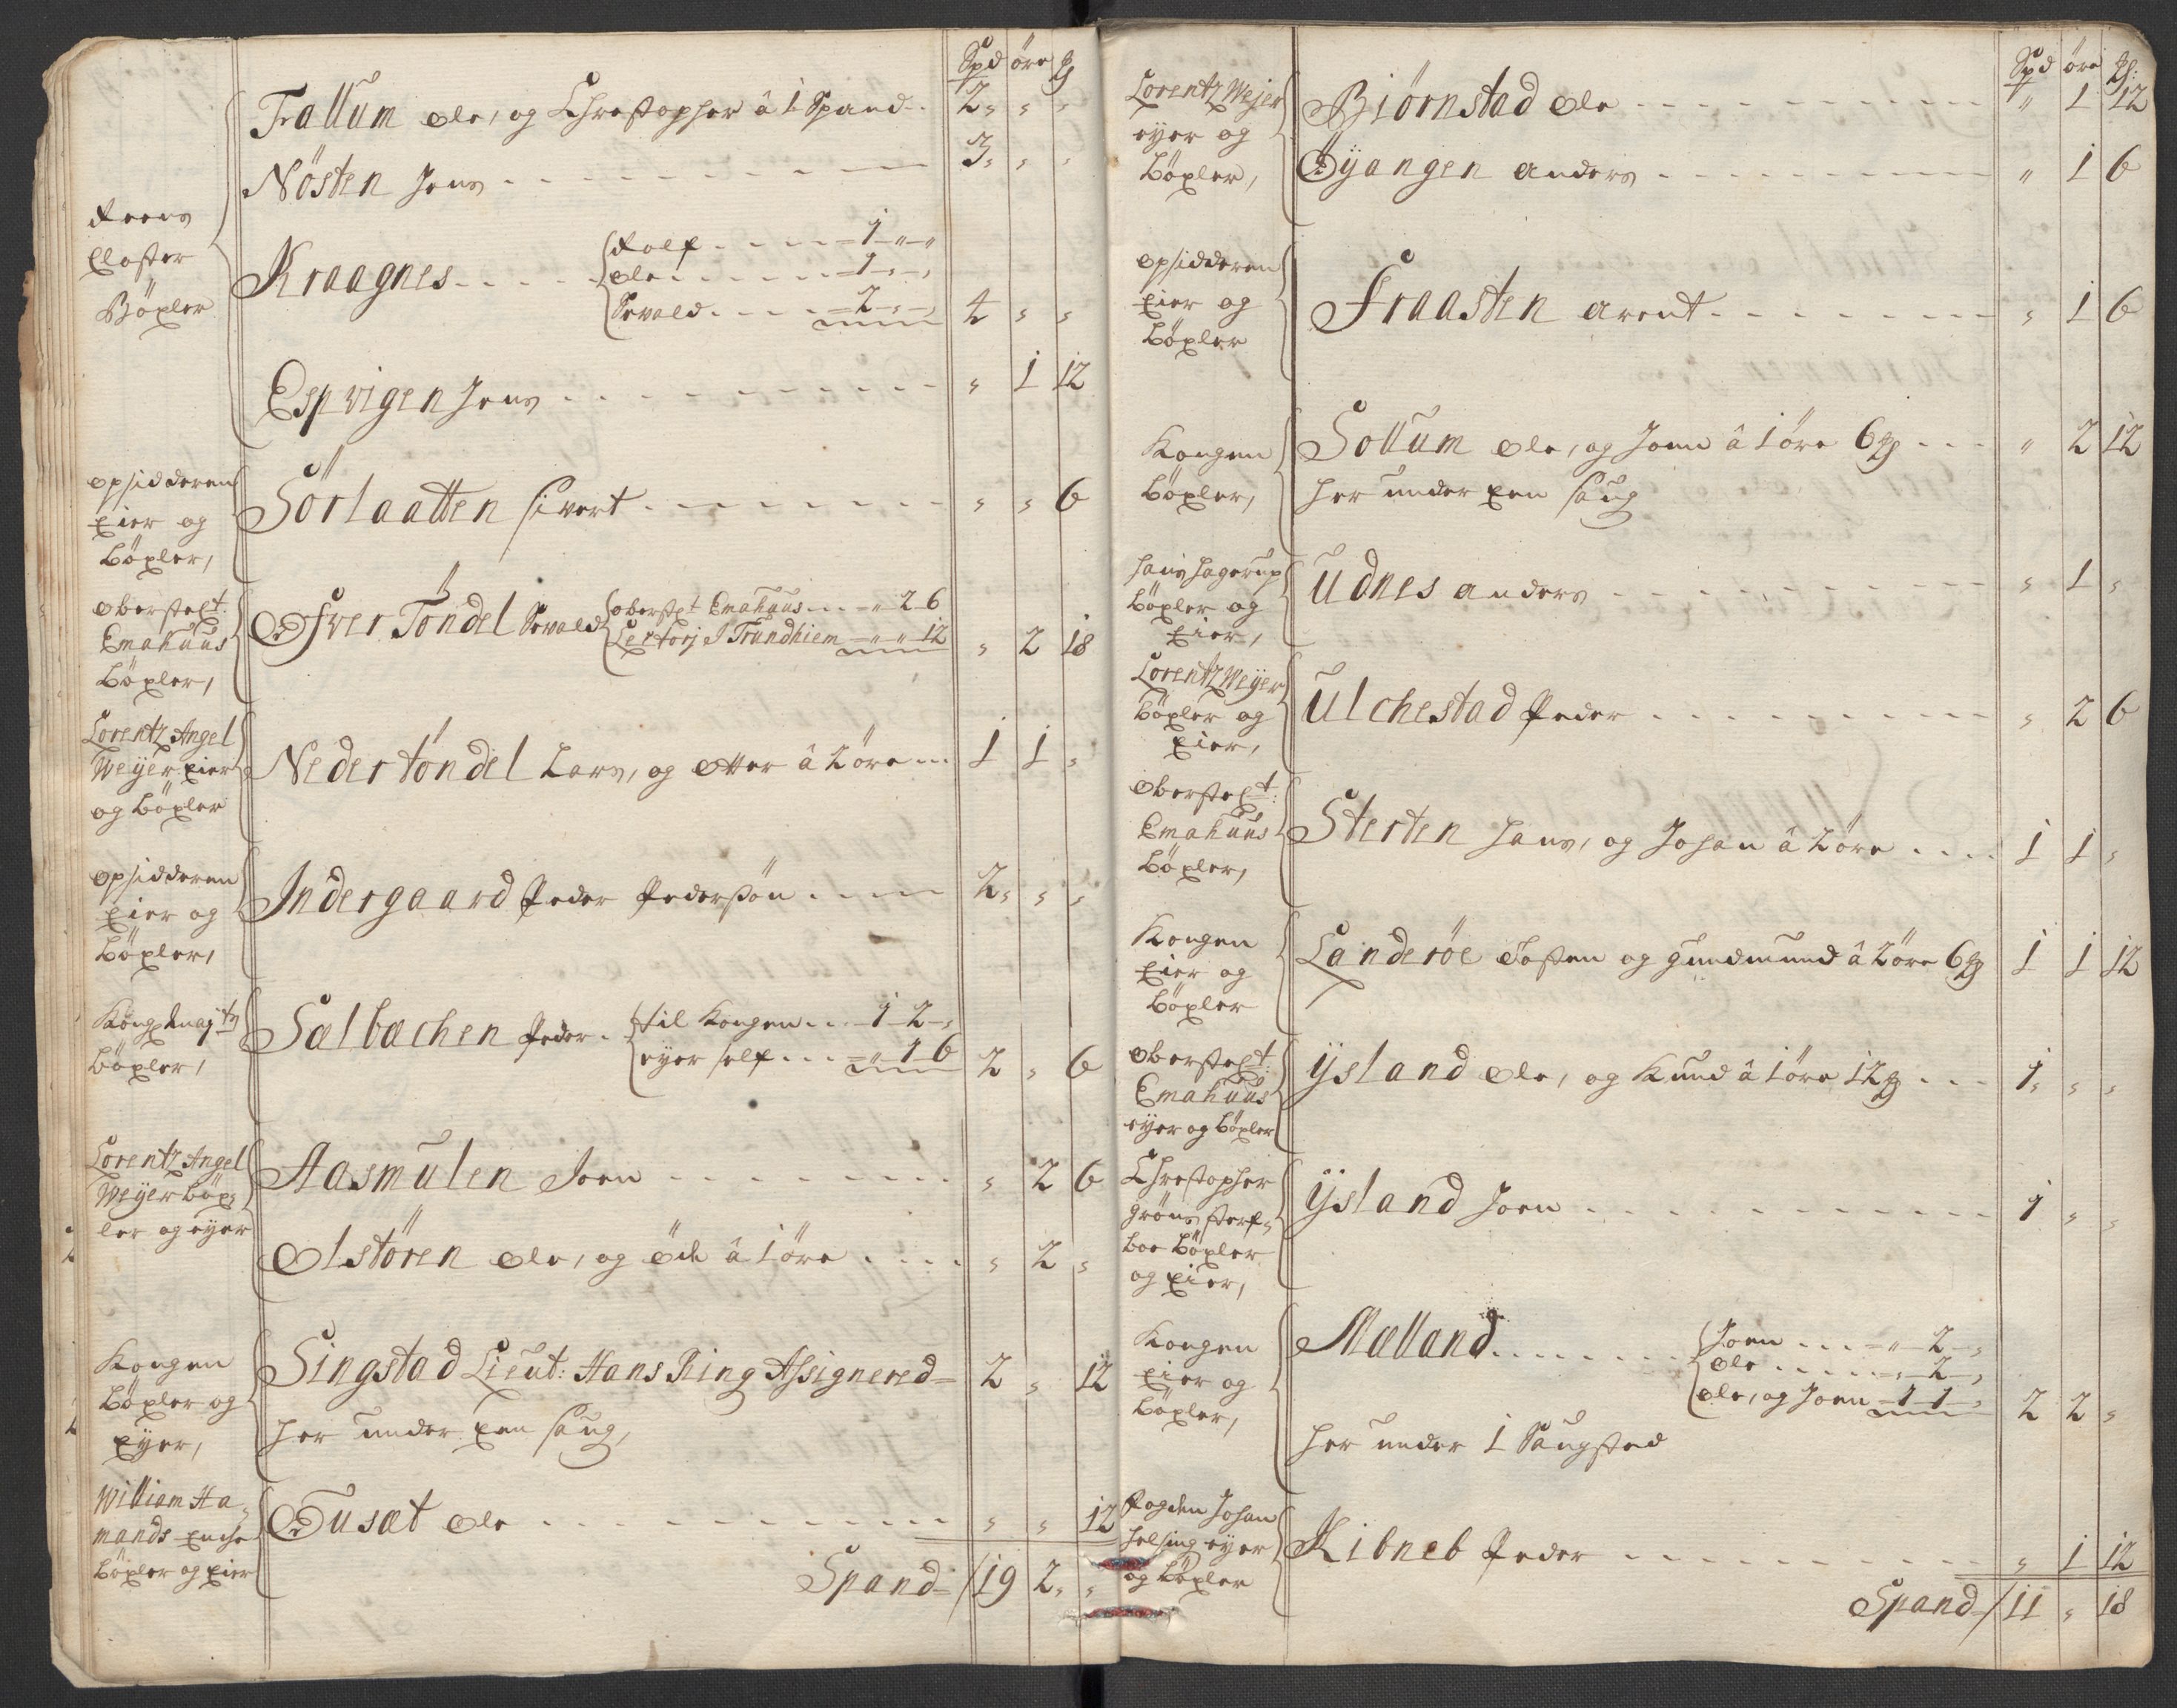 Spd öre ₰
Reens
Closter
Böxler
Trallum Ole, og Christopher â 1 Spand 2 " "
Nösten Jens 3 " "
Kraagnes Rolf 1 " "
Ole 1 " "
Sevald 2 " " 4 " "
Espvigen Jens " 1 12
Opsidderen
Eier og
böxler,
Sörlaatten Sivert " " 6
Oberstelt:
Emahuus
Böxler,
Öfver Töndel Sevald Oberstlt Emahuus " 2 6
Lectorj I Trundhiem " " 12 " 2 18
Lorentz Angel
Weyer Eier
og böxler
Neder töndel Lars, og Otter â 2 öre 1 1 "
Opsidderen
Eier og
böxler,
Indergaard Peder Pedersön 2 " "
Kong maytz
böxler,
Sælbæchen Peder til Kongen 1 2 "
eyer self " 1 6 2 " 6
Lorentz Angel
Weyer böx-
ler og eyer
Aasmulen Joen " 2 6
Olstören Ole, og Öde â 1 öre " 2 "
Kongen
Böxler og
Eyer,
Singstad Lieut: Hans Ring Assignered 2 " 12
Her under een Saug,
William Ha-
mands Enche
Böxler og Eier
Tusæt Ole " " 12
Spand 19 2 "
Spd öre ₰
Lorentz Weyer
eyer og
böxler,
Biörnstad Ole " 1 12
Öyangen Anders " 1 6
Opsidderen
Eier og
böxler
Fraasten Arent " 1 6
Kongen
böxler,
Sollum Ole, og Joen â 1 öre 6 ₰ " 2 12
Her under een Saug
Hans Hagerup
böxler og
Eier,
Udnes Anders " 1 "
Lorentz Weyer
böxler og
Eier,
Ulchestad Peder " 2 6
Oberstelt:
Emahuus
böxler,
Sterten Hans, og Johan â 2 öre 1 1 "
Kongen
Eier og
böxler
Landeröe Tosten og Gundmund â 2 öre 6 ₰ 1 1 12
Oberstelt:
Emahuus
eyer og böxler
Ysland Ole, og Knud â 1 öre 12 ₰ 1 " "
Christopher
Gröns sterf-
boe böxler
og Eier,
Ysland Joen 1 " "
Kongen
Eier og
böxler,
Mælland Joen " 2 "
Ole " 2 "
Ole, og Joen 1 1 " 2 2 "
Her under 1 Saugsted
Fogden Johan
Helsing eyer
og böxler
Kibneb Peder " 1 12
Spand 11 " 18